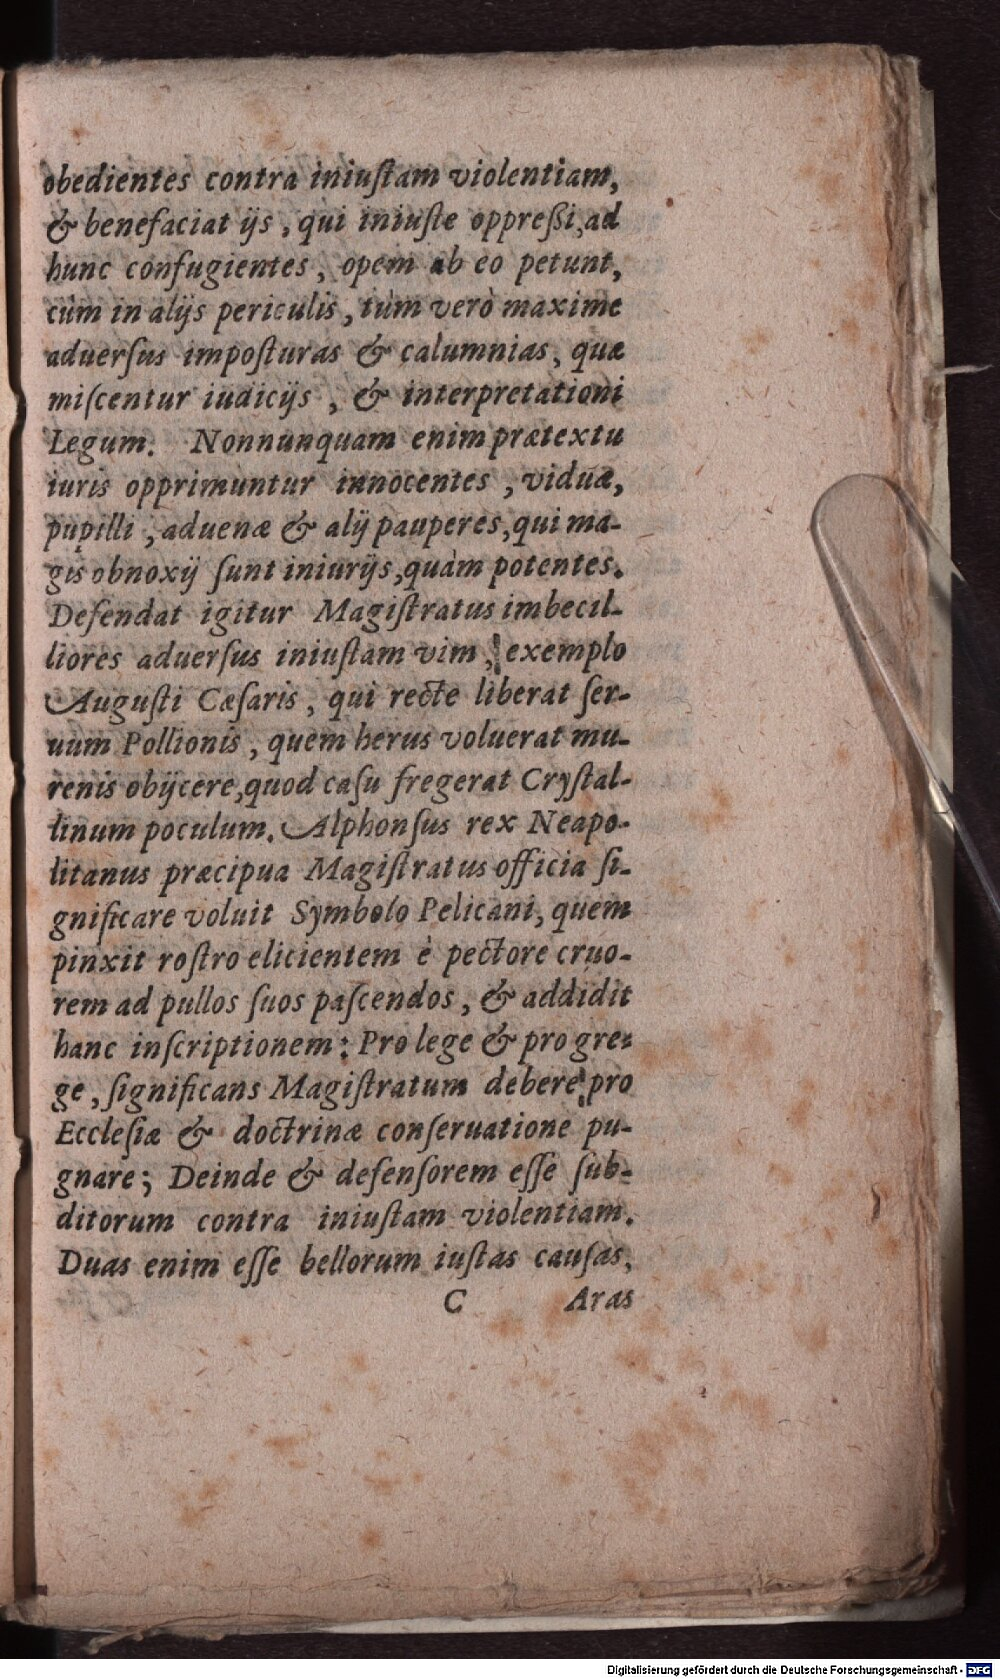 obedientes contra iniuſtam violentiam,
& benefaciat ijs, qui iniuſte oppreßi, ad
hunc confugientes, opem ab eo petunt,
cùm in alijs periculis, tùm verò maxime
aduerſus impoſturas & calumnias, quæ
miſcentur iudicijs, & interpretationi
Legum. Nonnunquam enim prætextu
iuris opprimuntur innocentes, viduæ,
pupilli, aduenæ & alij pauperes, qui ma-
gis obnoxij ſunt iniurijs, quàm potentes.
Defendat igitur Magiſtratus imbecil-
liores aduerſus iniuſtam vim, exemplo
Auguſti Cæſaris, qui recte liberat ſer-
uum Pollionis, quem herus voluerat mu-
renis obijcere, quod caſu fregerat Cryſtal-
linum poculum. Alphonſus rex Neapo-
litanus præcipua Magiſtratus officia ſi-
gnificare voluit Symbolo Pelicani, quem
pinxit roſtro elicientem è pectore cruo-
rem ad pullos ſuos paſcendos, & addidit
hanc inſcriptionem: Pro lege & pro gre-
ge, ſignificans Magiſtratum debere pro
Eccleſiæ & doctrinæ conſeruatione pu-
gnare; Deinde & defenſorem eſſe ſub-
ditorum contra iniuſtam violentiam.
Duas enim eſſe bellorum iuſtas cauſas,
C Aras
Digitalisierung gefördert durch die Deutsche Forschungsgemeinschaft - DFG